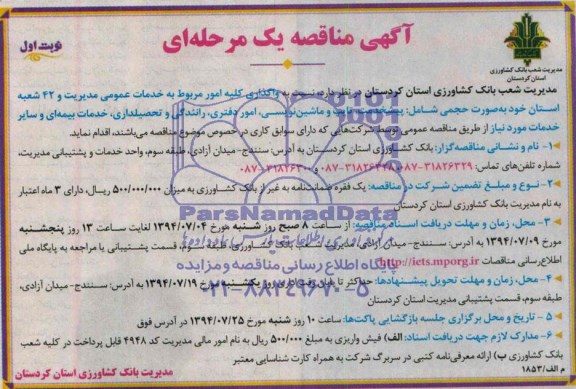 آگهی مناقصه یک مرحله‌ای
نوبت اول
مدیریت شعب بانک کشاورزی
استان کردستان
مدیریت شعب بانک کشاورزی استان کردستان در نظر دارد نسبت به واگذاری کلیه امور مربوط به خدمات عمومی مدیریت و ۴۲ شعبه
استان خود به‌صورت حجمی شامل: ماشین‌نویسی، امور دفتری، رانندگی و تحصیلداری، خدمات بیمه‌ای و سایر
خدمات مورد نیاز از طریق مناقصه عمومی توسط شرکت‌هایی که دارای سوابق کاری در خصوص موضوع مناقصه می‌باشند، اقدام نماید.
۱- نام و نشانی مناقصه‌گزار: بانک کشاورزی استان کردستان به آدرس: سنندج- میدان آزادی، طبقه سوم، واحد خدمات و پشتیبانی مدیریت،
شماره تلفن‌های تماس: ۳۱۸۲۶۳۲۹-۰۸۷
۲- نوع و مبلغ تضمین شرکت در مناقصه: یک فقره ضمانتنامه به غیر از بانک کشاورزی به میزان ۵۰۰/۰۰۰/۰۰۰ ریال، دارای ۳ ماه اعتبار
به نام مدیریت بانک کشاورزی استان کردستان
۳- محل، زمان و مهلت دریافت اسناد مناقصه: از ساعت ۸ صبح روز شنبه مورخ ۱۳۹۴/۰۷/۰۴ لغایت ساعت ۱۳ روز پنجشنبه
مورخ ۱۳۹۴/۰۷/۰۹ به آدرس: سنندج- میدان آزادی، مدیریت شعب بانک کشاورزی، طبقه سوم، قسمت پشتیبانی یا مراجعه به پایگاه ملی
اطلاع‌رسانی مناقصات http://iets.mporg.ir
۴- محل، زمان و مهلت تحویل پیشنهادها: حداکثر تا پایان وقت اداری روز یکشنبه مورخ ۱۳۹۴/۰۷/۱۹ به آدرس: سنندج- میدان آزادی،
طبقه سوم، قسمت پشتیبانی مدیریت استان کردستان
۵- تاریخ و محل برگزاری جلسه بازگشایی پاکت‌ها: ساعت ۱۰ روز شنبه مورخ ۱۳۹۴/۰۷/۲۵ در آدرس فوق
۶- مدارک لازم جهت دریافت اسناد: الف) فیش واریزی به مبلغ ۵۰۰/۰۰۰ ریال به نام امور مالی مدیریت کد ۴۹۴۸ قابل پرداخت در کلیه شعب
بانک کشاورزی ب) ارائه معرفی‌نامه کتبی در سربرگ شرکت به همراه کارت شناسایی معتبر
م الف/۱۸۵۳
مدیریت بانک کشاورزی استان کردستان
ParsNamadData
پایگاه اطلاع رسانی مناقصه و مزایده
۰۲۱-۸۸۳۴۹۶۷۰-۵